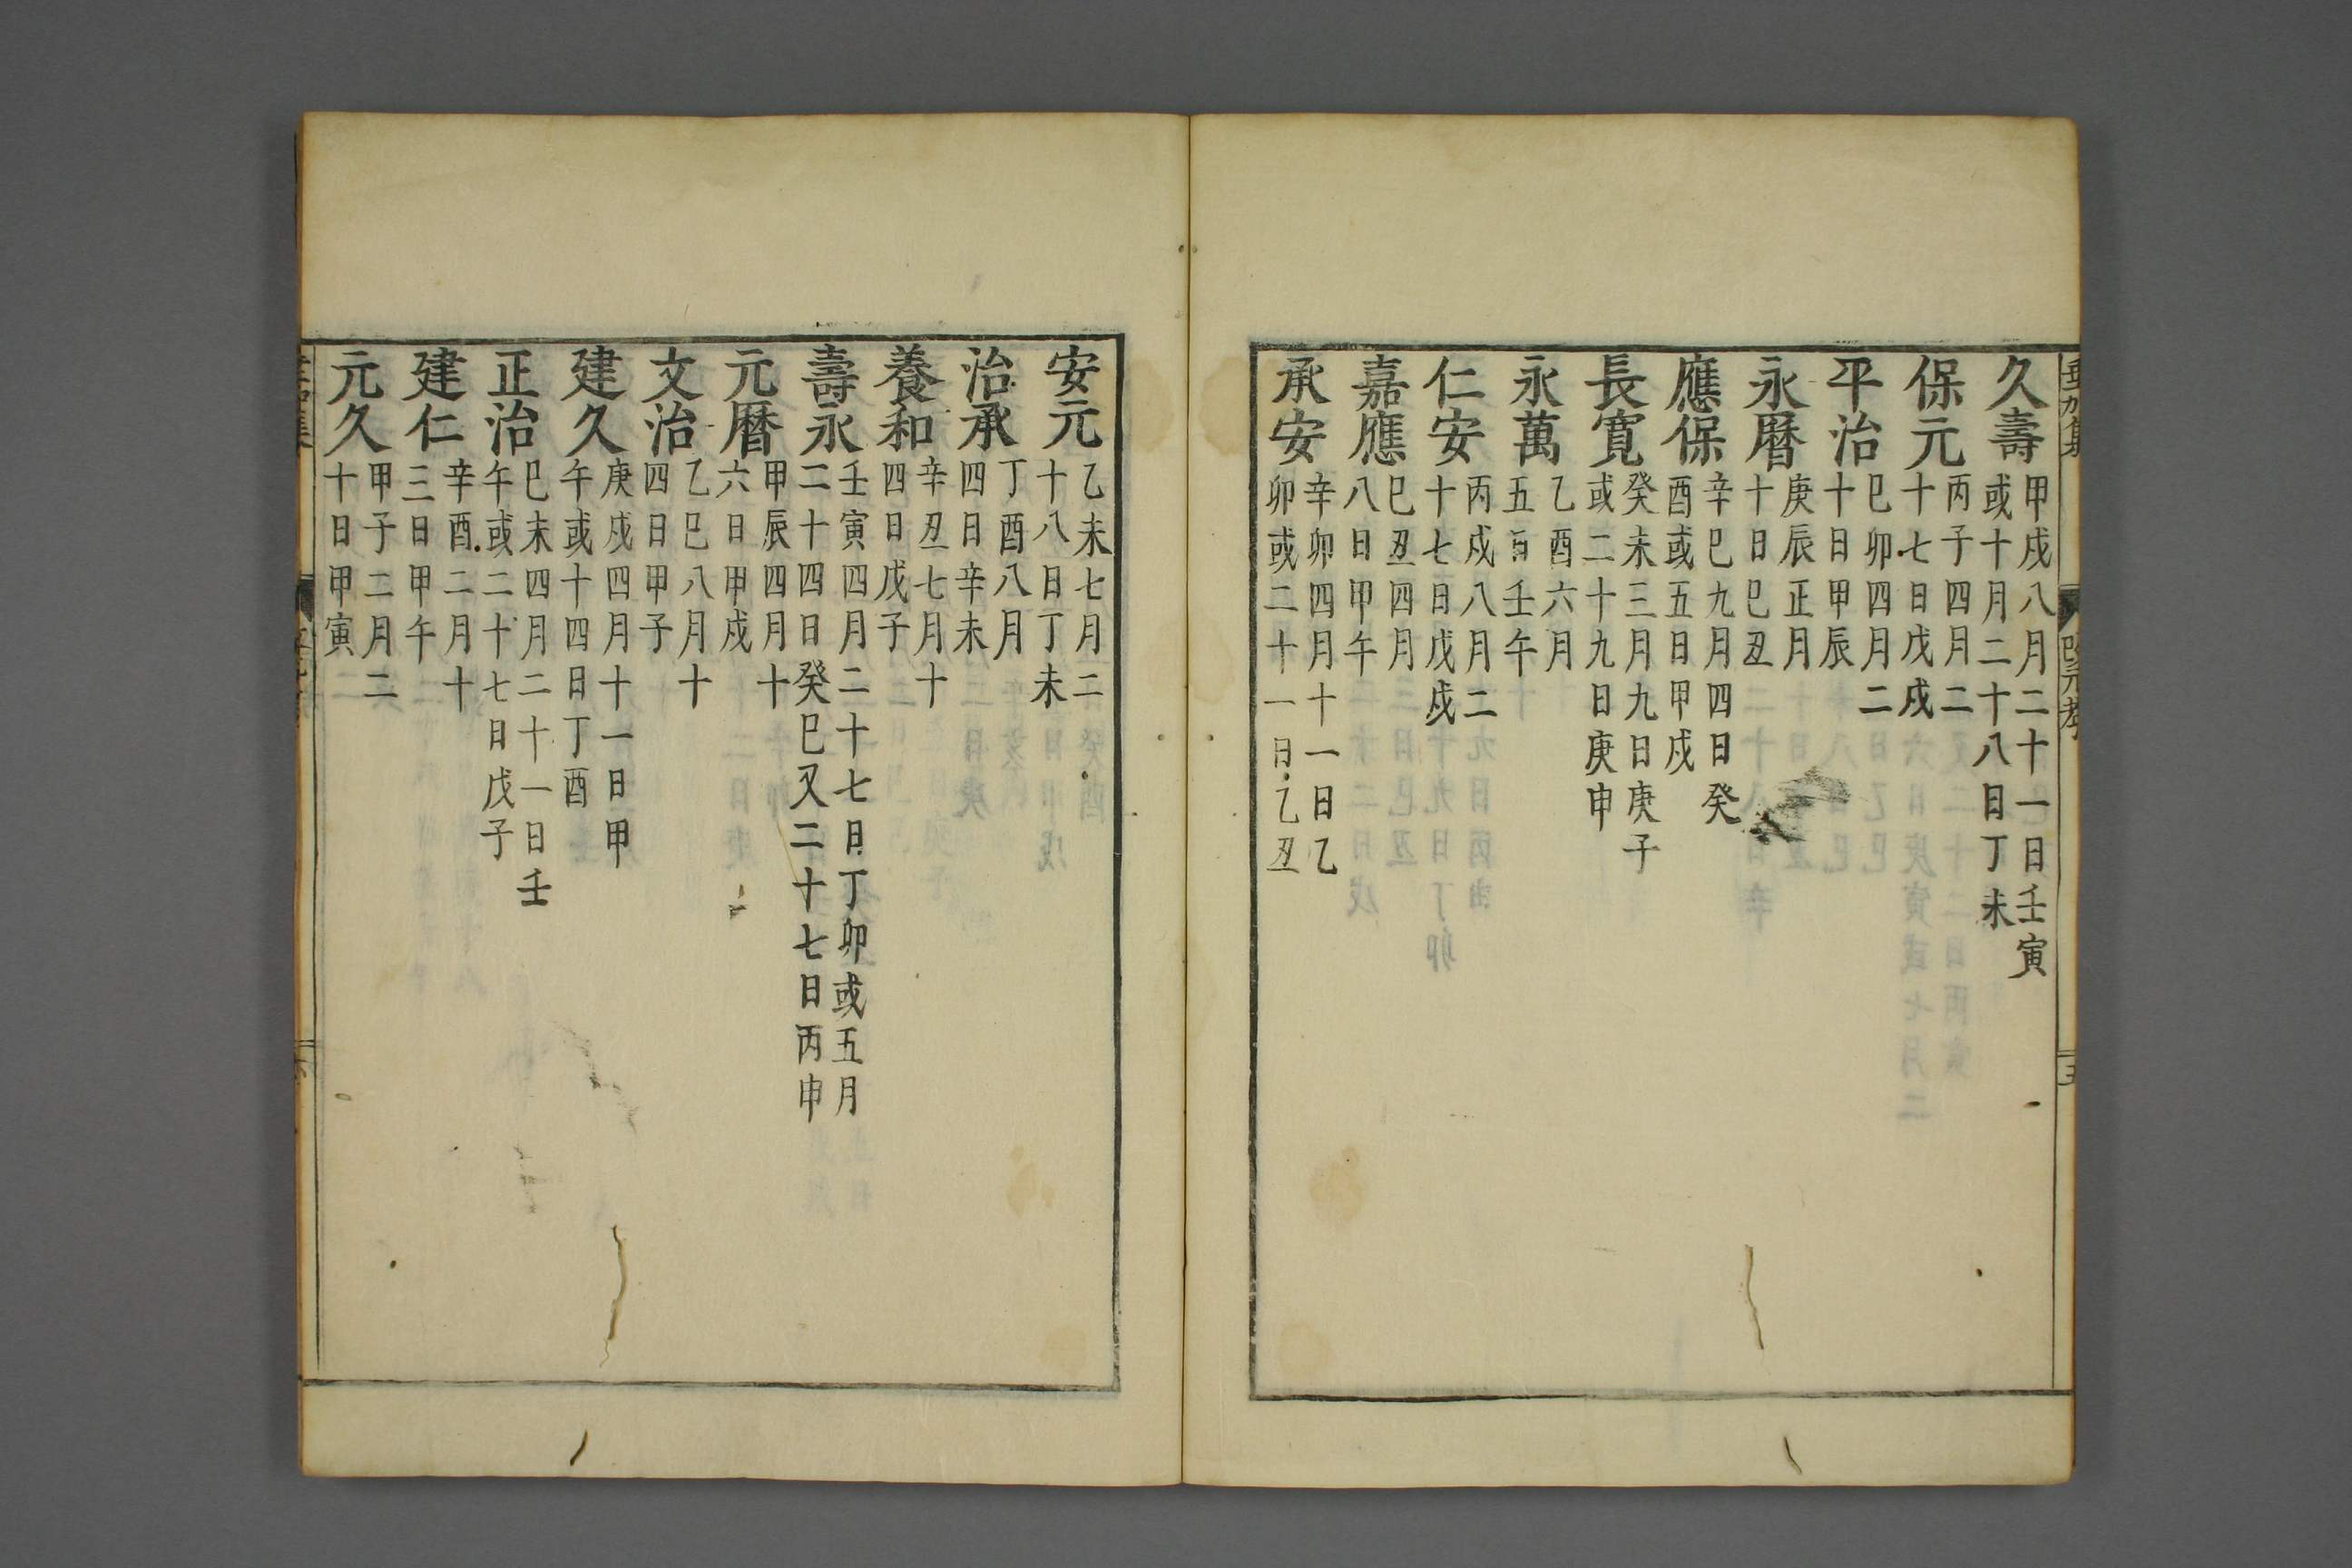 久壽甲戌八月二十一日壬寅
或十月二十八日丁未
保元丙子四月二
十七日戊戌
平治巳卯四月二
十日甲辰
永暦庚辰正月
十日巳丑
應保辛巳九月四日癸
酉或五日甲戌
長寛癸未三月九日庚子
或二十九日庚申
永萬乙酉六月
五日壬午
仁安丙戌八月二
十七日戊戌
嘉應巳丑四月
八日甲午
承安辛卯四月十一日乙
卯或二十一日乙丑
安元乙未七月二
十八日丁未
治承丁酉八月
四日辛未
養和辛丑七月十
四日戊子
壽永壬寅四月二十七日丁卯或五月
二十四日癸巳又二十七日丙申
元暦甲辰四月十
六日甲戌
文治乙巳八月十
四日甲子
建久庚戌四月十一日甲
午或十四日丁酉
正治巳未四月二十一日壬
午或二十七日戊子
建仁辛酉二月十
三日甲午
元久甲子二月二
十日甲寅